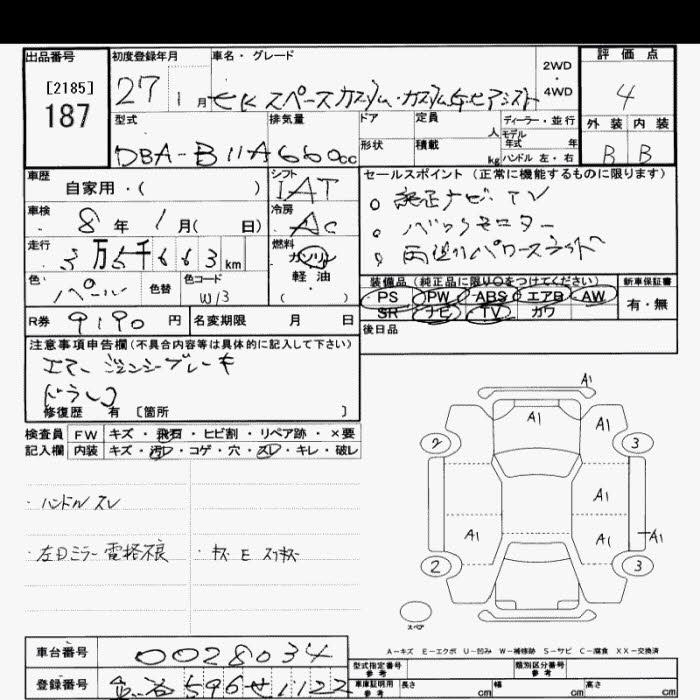 出品番号
[2185]
187
初度登録年月
27 1月
車名・グレード
eKスペースカスタム・カスタムGセーフアシスト
2WD
・
4WD
評価点
4
外装 内装
B B
型式
DBA-B11A
排気量
660cc
ドア
形状
定員
人
積載
kg
ディーラー・並行
モデル
年式 年
ハンドル 左・右
車歴
自家用・( )
シフト
IAT
車検
8年1月( 日)
冷房
AC
走行
3万5千663km
燃料
ガソリン
軽油
( )
色
パール
色替
色コード
W13
R券
9190円
名変期限 月 日
セールスポイント(正常に機能するものに限ります)
。純正ナビ・TV
。バックモニター
。両側パワースライド
装備品(純正品に限り○をつけてください)
PS PW ABS エアB AW
SR ナビ TV カワ
新車保証書
有・無
後日品
注意事項申告欄(不具合内容等は具体的に記入して下さい)
エマージェンシーブレーキ
ドラレコ
修復歴 有 [箇所 ]
検査員
記入欄
FW キズ・飛石・ヒビ割・リペア跡・×要
内装 キズ・汚レ・コゲ・穴・スレ・キレ・破レ
・ハンドルスレ
・左Dミラー電格不良
・キズ E スリキズ
A1
A1
A1
2
3
A1
A1
A1
A1
2
3
スペア
A-キズ E-エクボ U-凹み W-補修跡 S-サビ C-腐食 XX-交換済
車台番号
0028034
登録番号
596せ1122
型式指定番号
参考
類別区分番号
参考
車庫証明用
参考
長さ cm
幅 cm
高さ cm